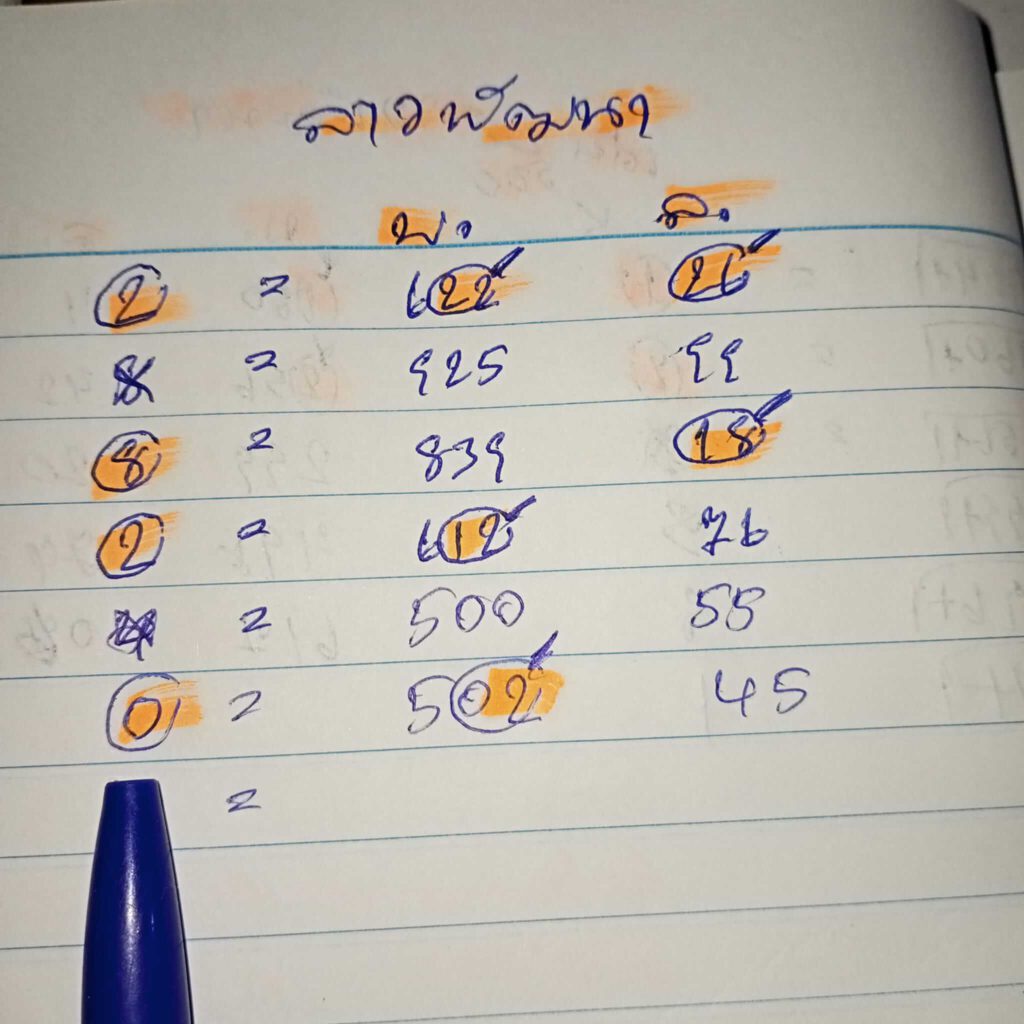 ลาวพัฒนา
บ. ล.
2 = 622 26
8 = 925 99
8 = 839 18
2 = 612 76
= 500 55
0 = 502 45
=